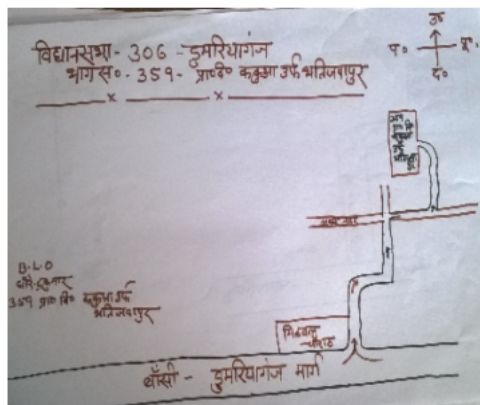 विधानसभा - 306 - डुमरियागंज
भाग सं० - 359 - प्रा० वि० ककुआ उर्फ भतिजवापुर
उ०
प०
पू०
द०
B.L.O
359 प्रा० वि० ककुआ उर्फ
भतिजवापुर
मिठवल
चौराहा
बाँसी - डुमरियागंज मार्ग